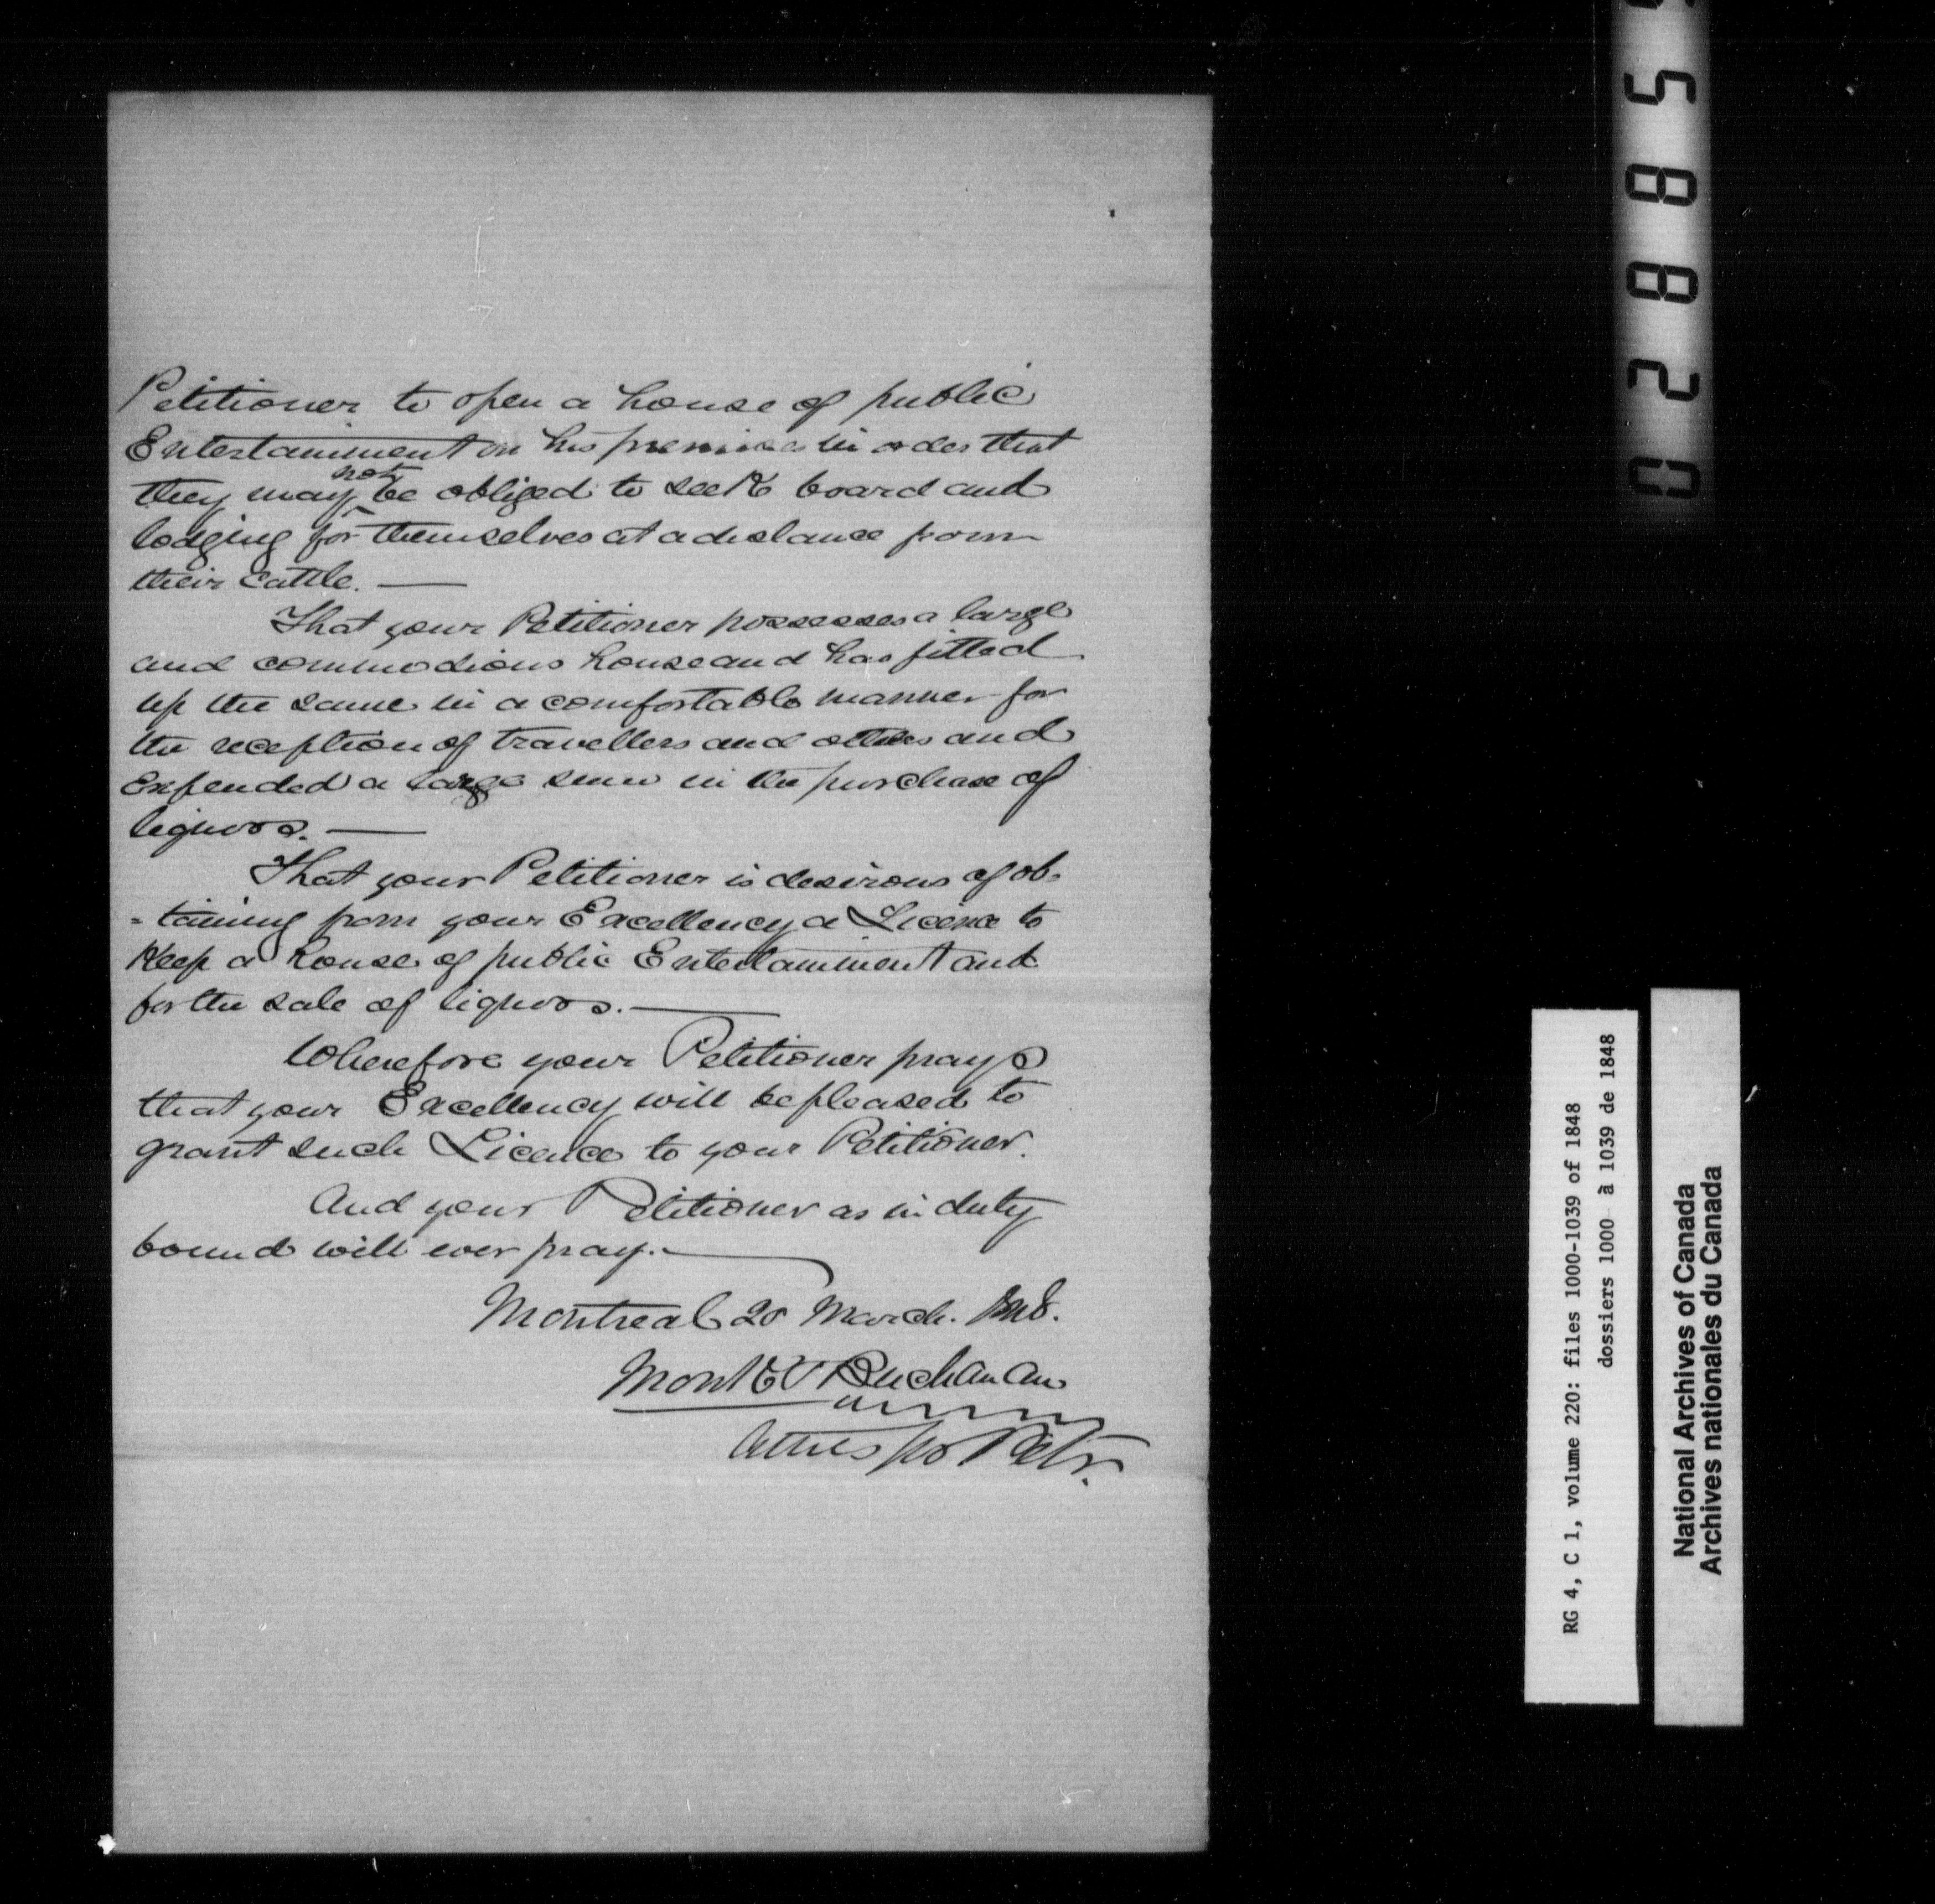 Petitioner to open a house of public
Entertainment on his premises in order that
they may not be obliged to seek board and
lodging for themselves at a distance from
their cattle. —
That your Petitioner possesses a large
and commodious house and has fitted
up the same in a comfortable manner for
the reception of travellers and others and
Expended a large sum in the purchase of
liquors. —
That your Petitioner is desirous of ob-
=taining from your Excellency a Licence to
Keep a house of public Entertainment and
for the sale of liquors. —
Wherefore your Petitioner prays
that your Excellency will be pleased to
grant such Licence to your Petitioner.
And your Petitioner as in duty
bound will ever pray. —
Montreal 20 March. 1848.
Monk & Buchanan
Atties for Petr.
02885
RG 4, C 1, volume 220: files 1000-1039 of 1848
dossiers 1000 à 1039 de 1848
National Archives of Canada
Archives nationales du Canada